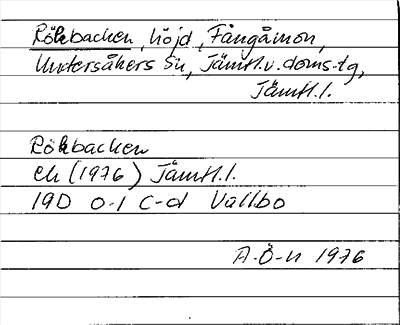 Rökbacken, höjd, Fångåmon,
Undersåkers sn, Jämtl.v.doms-tg,
Jämtl.l.
Rökbacken
ek (1976) Jämtl.l.
19D 0-1 c-d Vallbo
A.Ö-n 1976